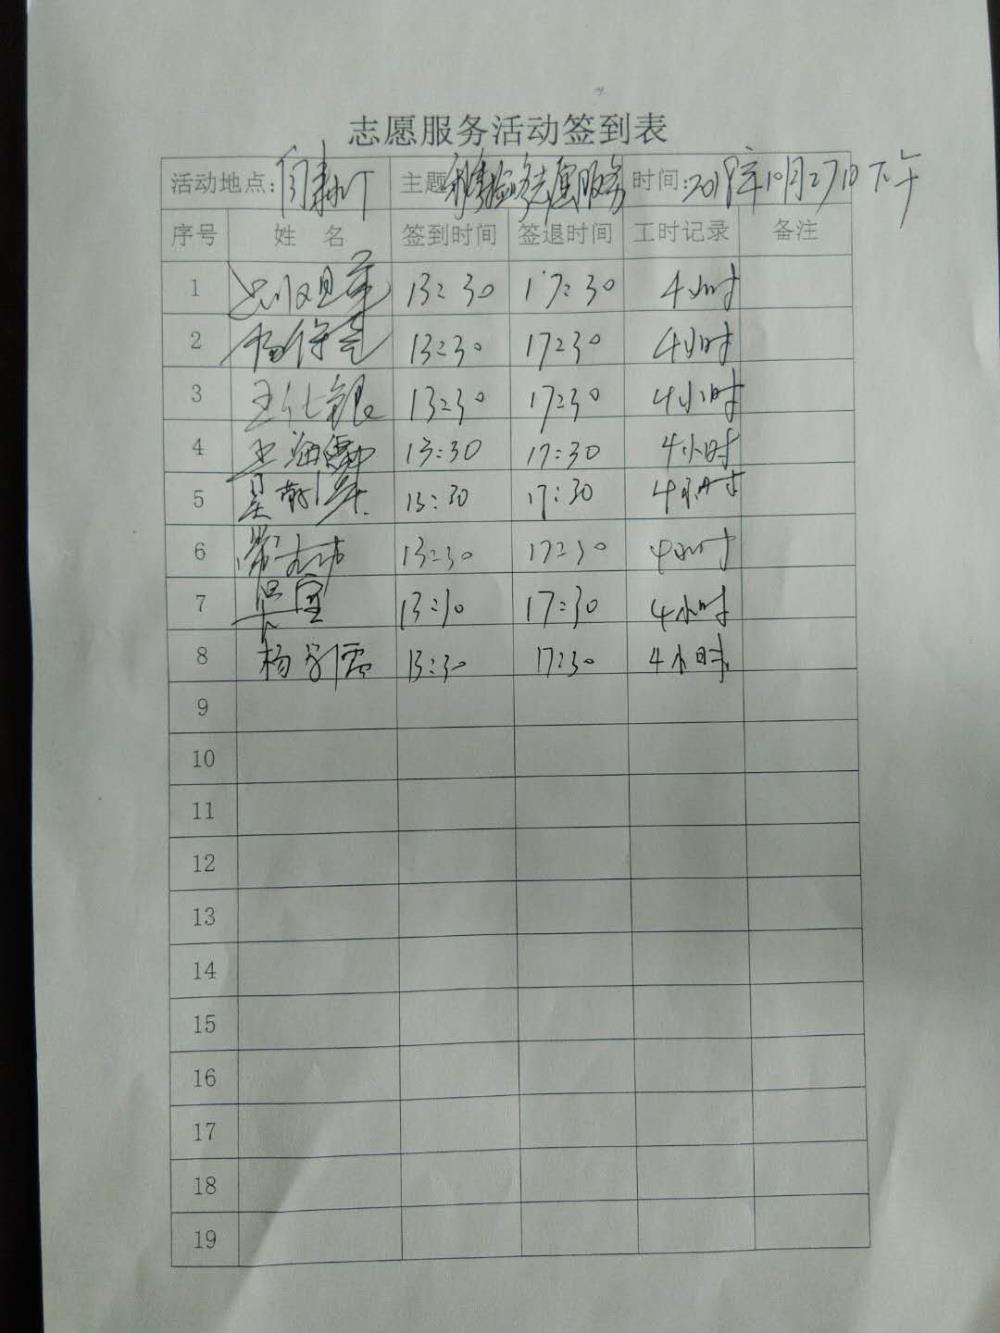 志愿服务活动签到表
活动地点: 主题 志愿服务 时间:2018年10月27日下午
序号 姓 名 签到时间 签退时间 工时记录 备注
1 13:30 17:30 4小时
2 13:30 17:30 4小时
3 王仕银 13:30 17:30 4小时
4 13:30 17:30 4小时
5 13:30 17:30 4小时
6 13:30 17:30 4小时
7 13:30 17:30 4小时
8 杨 13:30 17:30 4小时
9
10
11
12
13
14
15
16
17
18
19